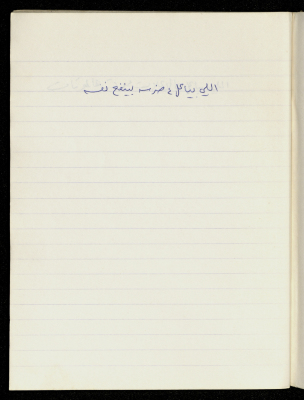 اللي بياكل ع ضرسه بينفع نفسه